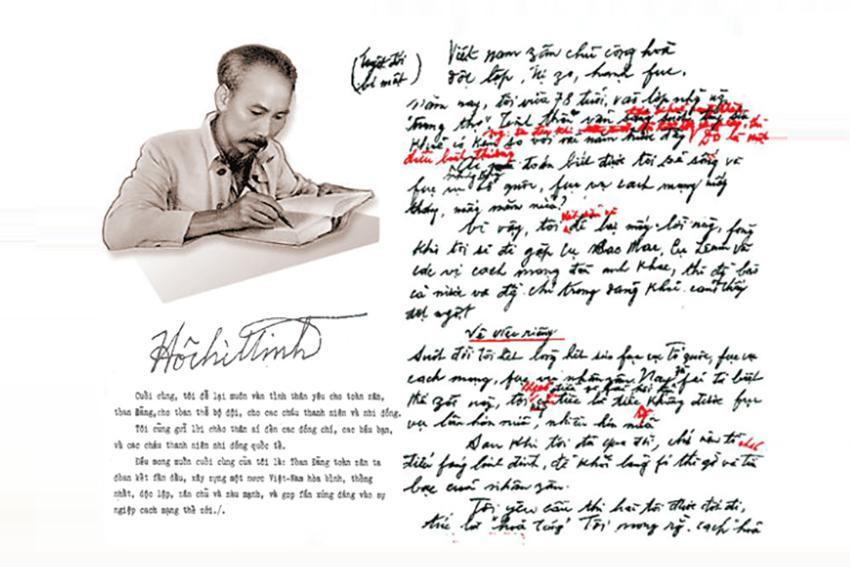 (tuyệt đối
bí mật)
Việt nam zân chủ cộng hoà
độc lập, tự zo, hạnh fúc.
Năm nay, tôi vừa 78 tuổi, vào lớp những
"trung thọ". Tinh thần vẫn
khoẻ có kém so với vài năm trước đây Đó là một
điều bình thường
toàn biết được tôi sẽ sống và
fục vụ tổ quốc, fục vụ cách mạng mấy
tháng, mấy năm nữa?
Vì vậy, tôi để lại mấy lời này, fòng
khi tôi sẽ đi gặp cụ Mác, cụ Lênin và
các vị cách mạng đàn anh khác, thì đồng bào
cả nước và đồng chí trong đảng khỏi cảm thấy
đột ngột
Về việc riêng
Suốt đời tôi hết lòng hết sức fục vụ Tổ quốc, fục vụ
cách mạng, fục vụ nhân zân. Nay zù fải từ biệt
thế zới này, tôi tiếc là tiếc không được fục
vụ lâu hơn nữa, nhiều hơn nữa
Sau khi tôi đã qua đời, chớ nên tổ chức
điếu fúng linh đình, để khỏi lãng fí thì zờ và tiền
bạc của nhân zân.
Tôi yêu cầu thi hài tôi được đốt đi,
tức là "hoả táng" Tôi mong rằng cách "hoả
Hồ Chí Minh
Cuối cùng, tôi để lại muôn vàn tình thân yêu cho toàn zân,
toàn Đảng, cho toàn thể bộ đội, cho các cháu thanh niên và nhi đồng.
Tôi cũng gửi lời chào thân ái đến các đồng chí, các bầu bạn,
và các cháu thanh niên nhi đồng quốc tế.
Điều mong muốn cuối cùng của tôi là: Toàn Đảng toàn zân ta
đoàn kết fấn đấu, xây zựng một nước Việt-Nam hòa bình, thống
nhất, độc lập, zân chủ và zàu mạnh, và góp fần xứng đáng vào sự
ngiệp cách mạng thế zới./.